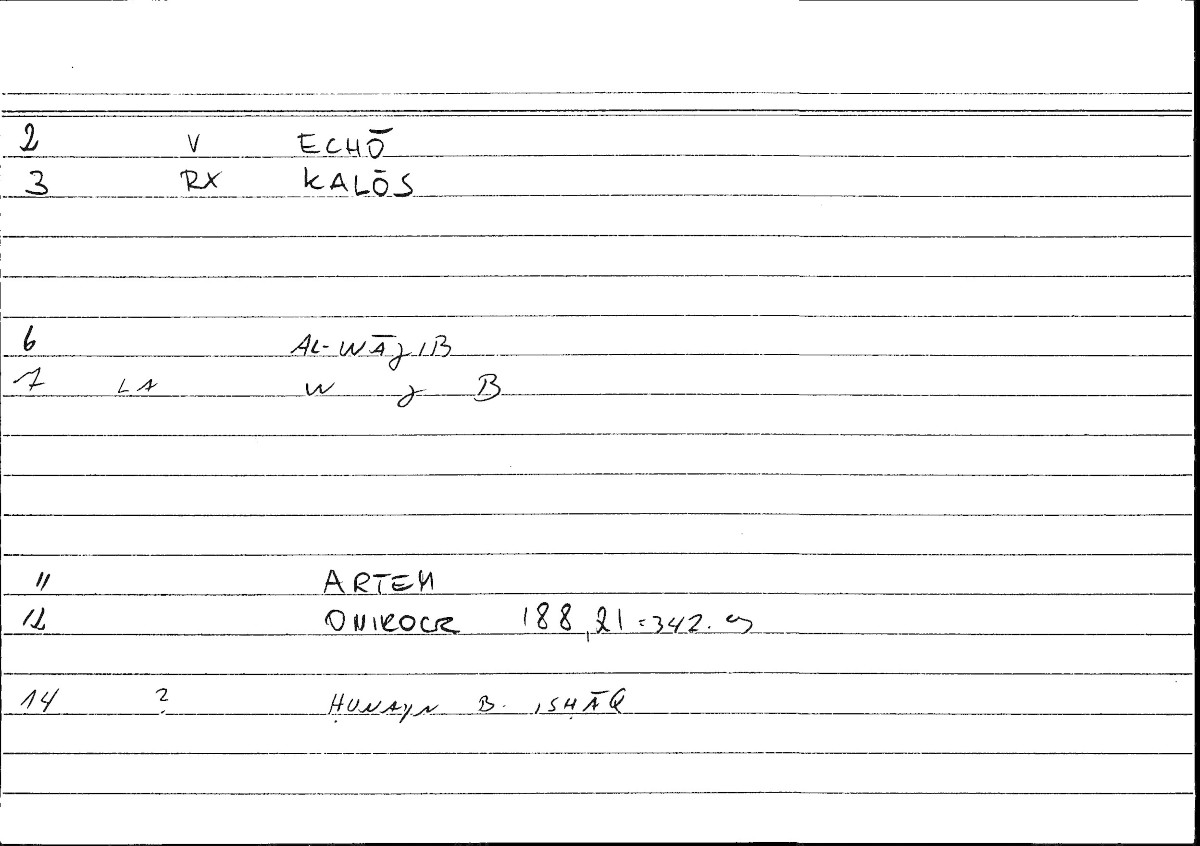 2 V ECHŌ
3 RX KALŌS
6 AL-WĀJIB
7 LA W J B
11 ARTEM
12 ONIROCR 188,21 = 342.
14 ? ḤUNAYN B. ISḤĀQ